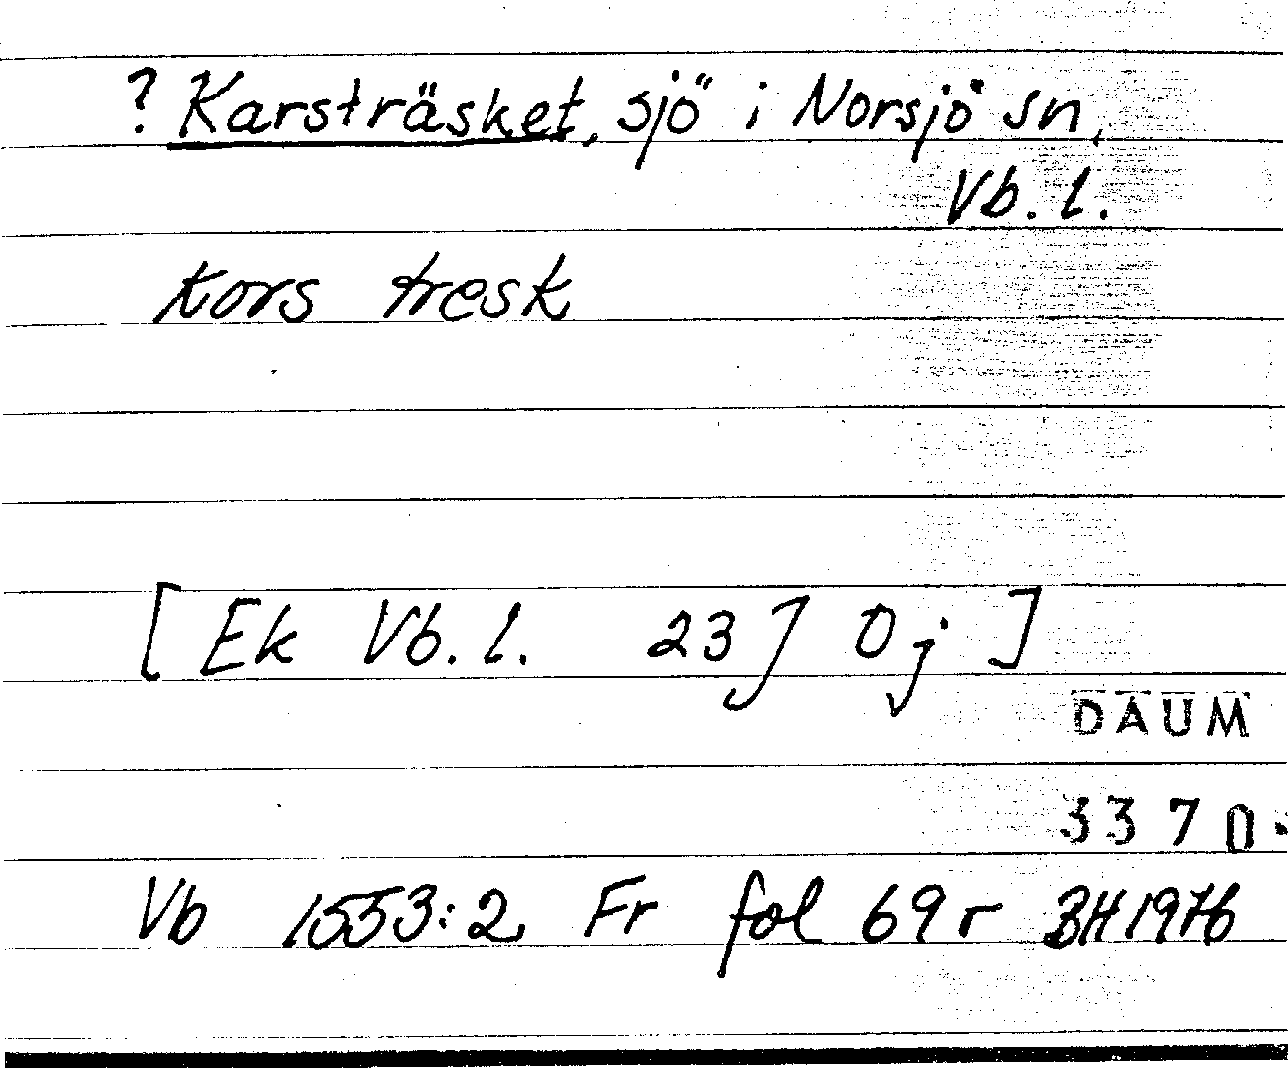 ? Karsträsket, sjö i Norsjö sn,
Vb. l.
kors tresk
[ Ek Vb. l. 23 J 0 j ]
DAUM
3370
Vb 1553:2 Fr fol 69 r BH 1976